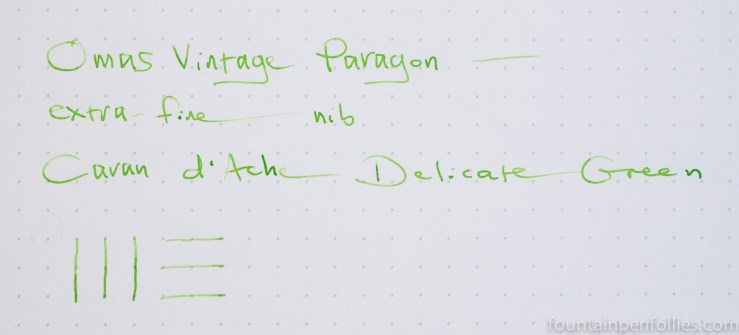 Omas Vintage Paragon —
extra-fine nib
Caran d'Ache Delicate Green
fountainpenfollies.com